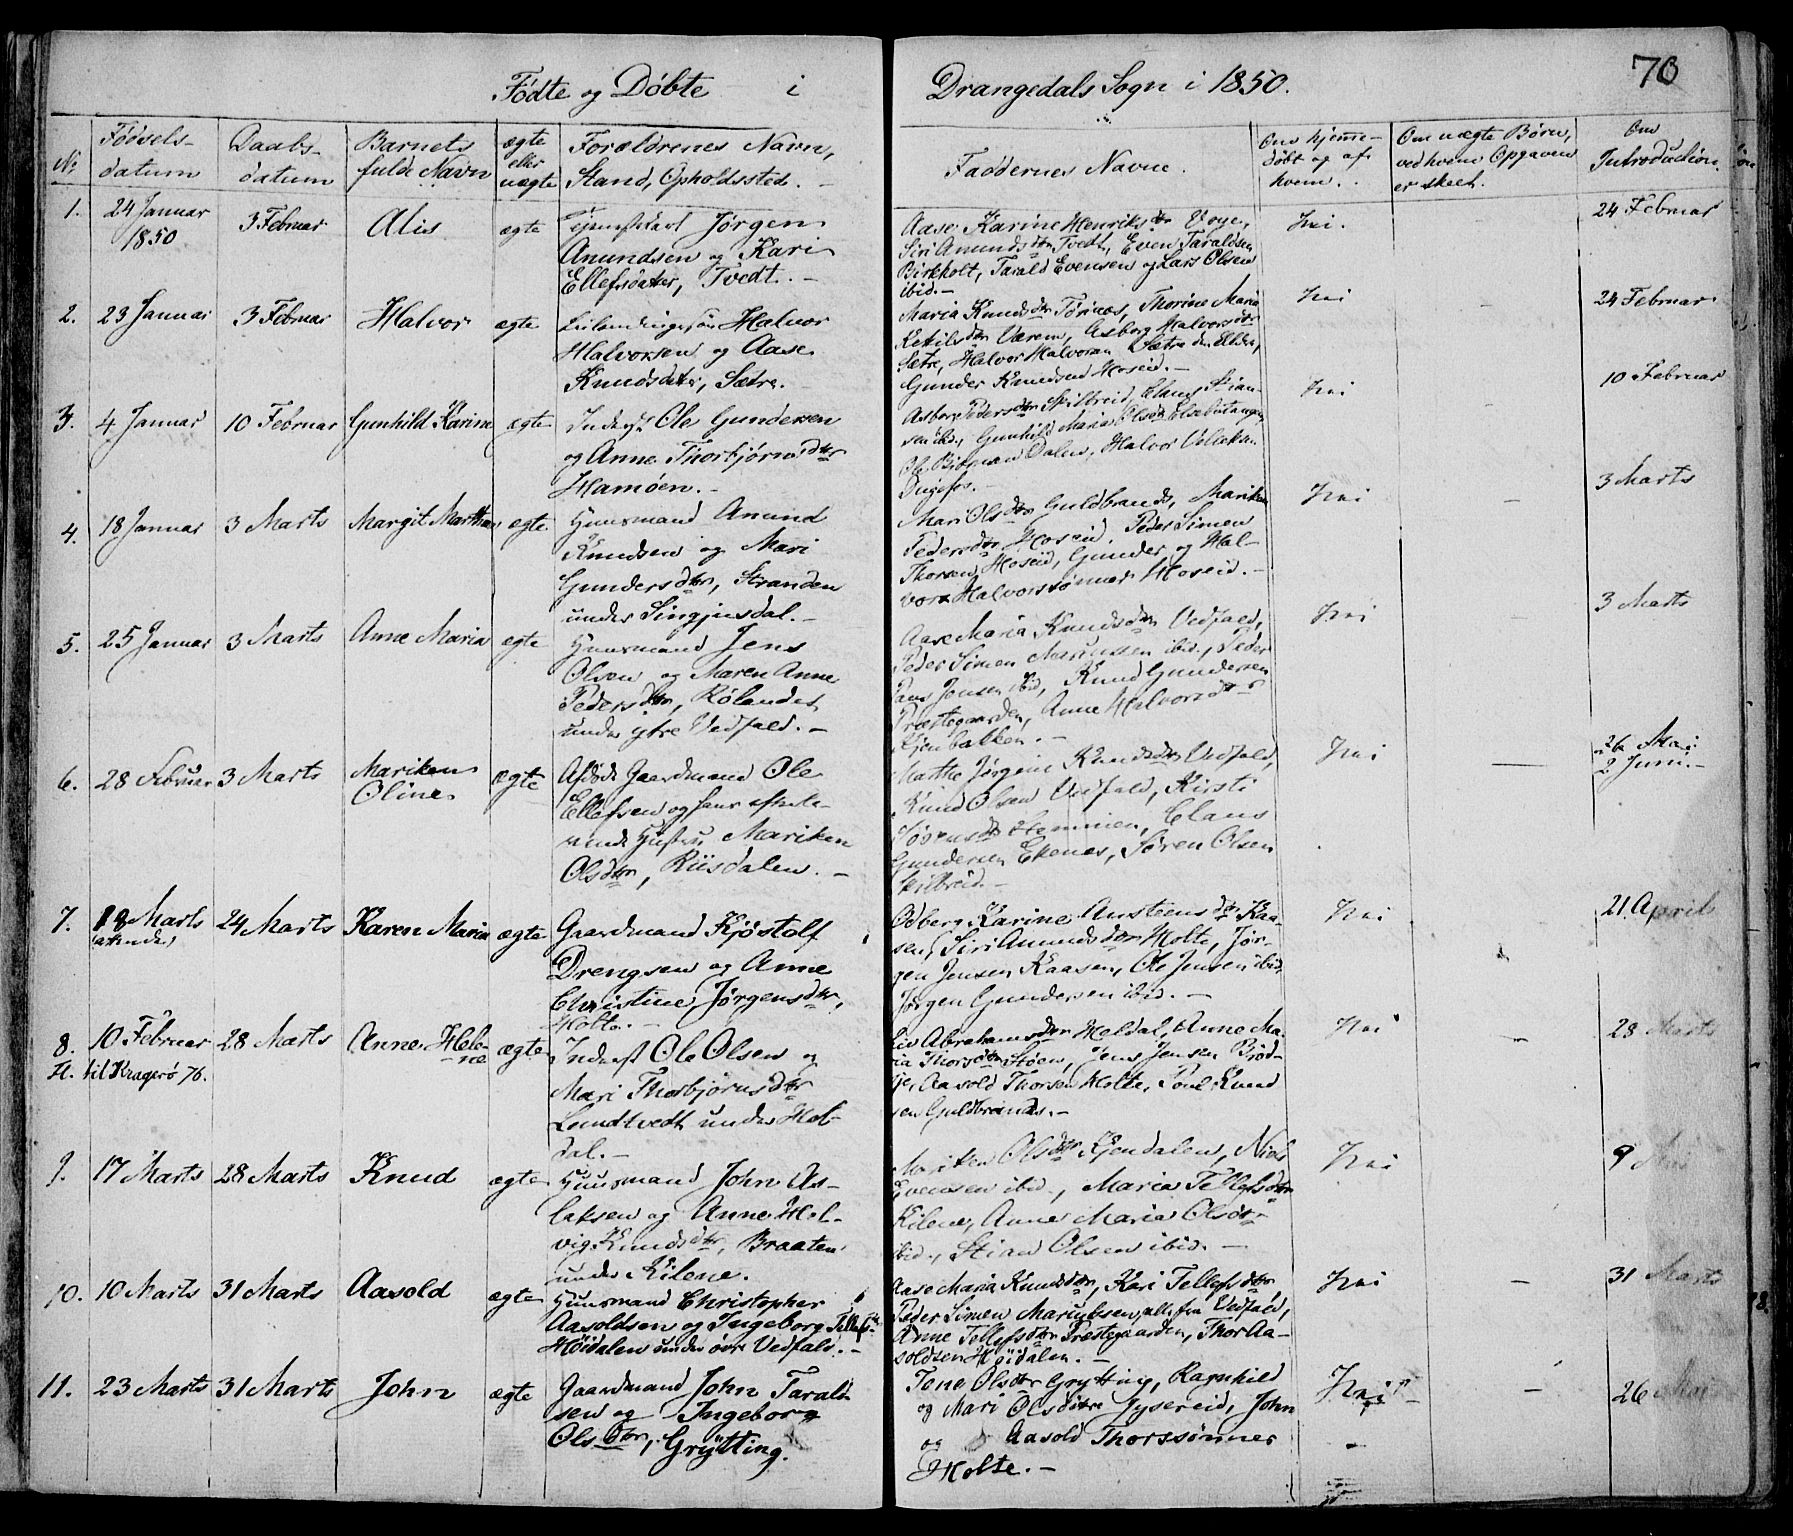 Fødte og Døbte i Drangedals Sogn i 1850. 70
No Fødsels-datum Daabs-datum Barnets fulde Navn ægte eller uægte Forældrenes Navn, Stand, Opholdssted. Faddernes Navne. Om hjemmedøbt og af hvem. Om uægte Børn, ved hvem Opgaven er skeet. Om Introduction.
1. 24 Januar 1850 3 Februar Alis ægte Jørgen
Anundsen og Kari
Ellefsdatter, Tvedt. -
Aase Karine Henriksdtr Voje,
Siri Anundsdtr Tvedt, Even Taraldsen
Birkholt, Tarald Evensen og Lars Olsen
ibid. -
Nei. 24 Februar
2. 23 Januar 3 Februar Halvor ægte Halvor
Halvorsen og Aase
Knudsdatter, Sætre.
Maria Knudsdtr Tørnes, Thorine Maria
Ketilsdtr Værem, Asborg Halvorsdtr
Sætre, Halvor Halvorsen Sætre den Eldre,
Gunder Knudsen Hoseid. -
Nei 24 Februar
3. 4 Januar 10 Februar Gunhild Karine ægte Inderst Ole Gundersen
og Anne Thorbjørnsdtr
Hamøen. -
Asborg Pedersdtr Skilbreid, Claus Stian-
sen ibid, Gunhild Maria Olsdtr
Ole Dalen, Halvor
Nei 10 Februar
4. 18 Januar 3 Marts Margit Marthea ægte Huusmand Anund
Knudsen og Mari
Gundersdtr, Stranden
under Singjusdal. -
Mari Olsdtr Guldbrands, Mariken
Pedersdtr Hoseid, Peder Simen
Thorsen Hoseid, Gunder og Hal-
vor Halvorssønner Hoseid. -
Nei 3 Marts
5. 25 Januar 3 Marts Anne Maria ægte Huusmand Jens
Olsen og Maren Anne
Pedersdtr, Rølandet
under ytre Vedfald. -
Aase Maria Knudsdtr Vedfald,
Peder Simen Mariussen ibid, Peder
Jensen ibid, Knud Gundersen
Præstegaarden, Anne Halvorsdtr
Nei 3 Marts
6. 28 Februar 3 Marts Mariken
Oline ægte Afdøde Gaardmand Ole
Ellefsen og hans efterle-
vende Hustru Mariken
Olsdtr, Riisdalen. -
Marthe Jørgine Knudsdtr Vedfald,
Knud Olsen Vedfald, Kirsti
Claus
Gundersen Ekenes, Søren Olsen
Skilbreid. -
Nei 26 Mai
2 Juni. -
7. Marts 24 Marts Karen Maria ægte Gaardmand Kjøstolf
Drengsen og Anne
Christine Jørgensdtr,
Holte. -
Odberg Karine Austeensdtr Kaa-
sen, Siri Anundsdtr Holte, Jør-
gen Jensen Kaasen, Ole Jensen ibid,
Jørgen Gundersen ibid. -
Nei 21 April
8. 10 Februar 28 Marts Anne Hele-
ne ægte Inderst Ole Olsen og
fl. til Kragerø 76.
Mari Thorbjørnsdtr
Lundtvedt under Hel-
dal. -
Liv Abrahamsdtr Heldal, Anne Ma-
ria Thorsdtr Støen, Jens Jensen Brød-
Aasold Thorsen Holte, Poul Knud
sen Guldbrands. -
Nei 28 Marts
9. 17 Marts 28 Marts Knud ægte Huusmand John As-
laksen og Anne Hel-
vig Knudsdtr, Braaten
under Kilene.
Mariken Olsdtr Kjendalen, Niels
Evensen ibid, Maria Tellefsdtr
Kilene, Anne Maria Olsdtr
ibid, Stian Olsen ibid. -
Nei 9 Mai
10. 10 Marts 31 Marts Aasold ægte Huusmand Christopher
Aasoldsen og Ingeborg Tellefsdtr
Høidalen under øvre Vedfald. -
Aase Maria Knudsdtr, Kari Tellefsdtr,
Peder Simen Mariussen, alle fra Vedfald,
Anne Tellefsdtr Præstegaarden, Thor Aa-
soldsen Høidalen. -
Nei 31 Marts
11. 23 Marts 31 Marts John ægte Gaardmand John Tarald-
sen og Ingeborg
Olsdtr, Grytting.
Tone Olsdtr Grytting, Ragnhild
og Mari Olsdøtre Jysereid, John
og Aasold Thorssønner
Holte. -
Nei 26 Mai